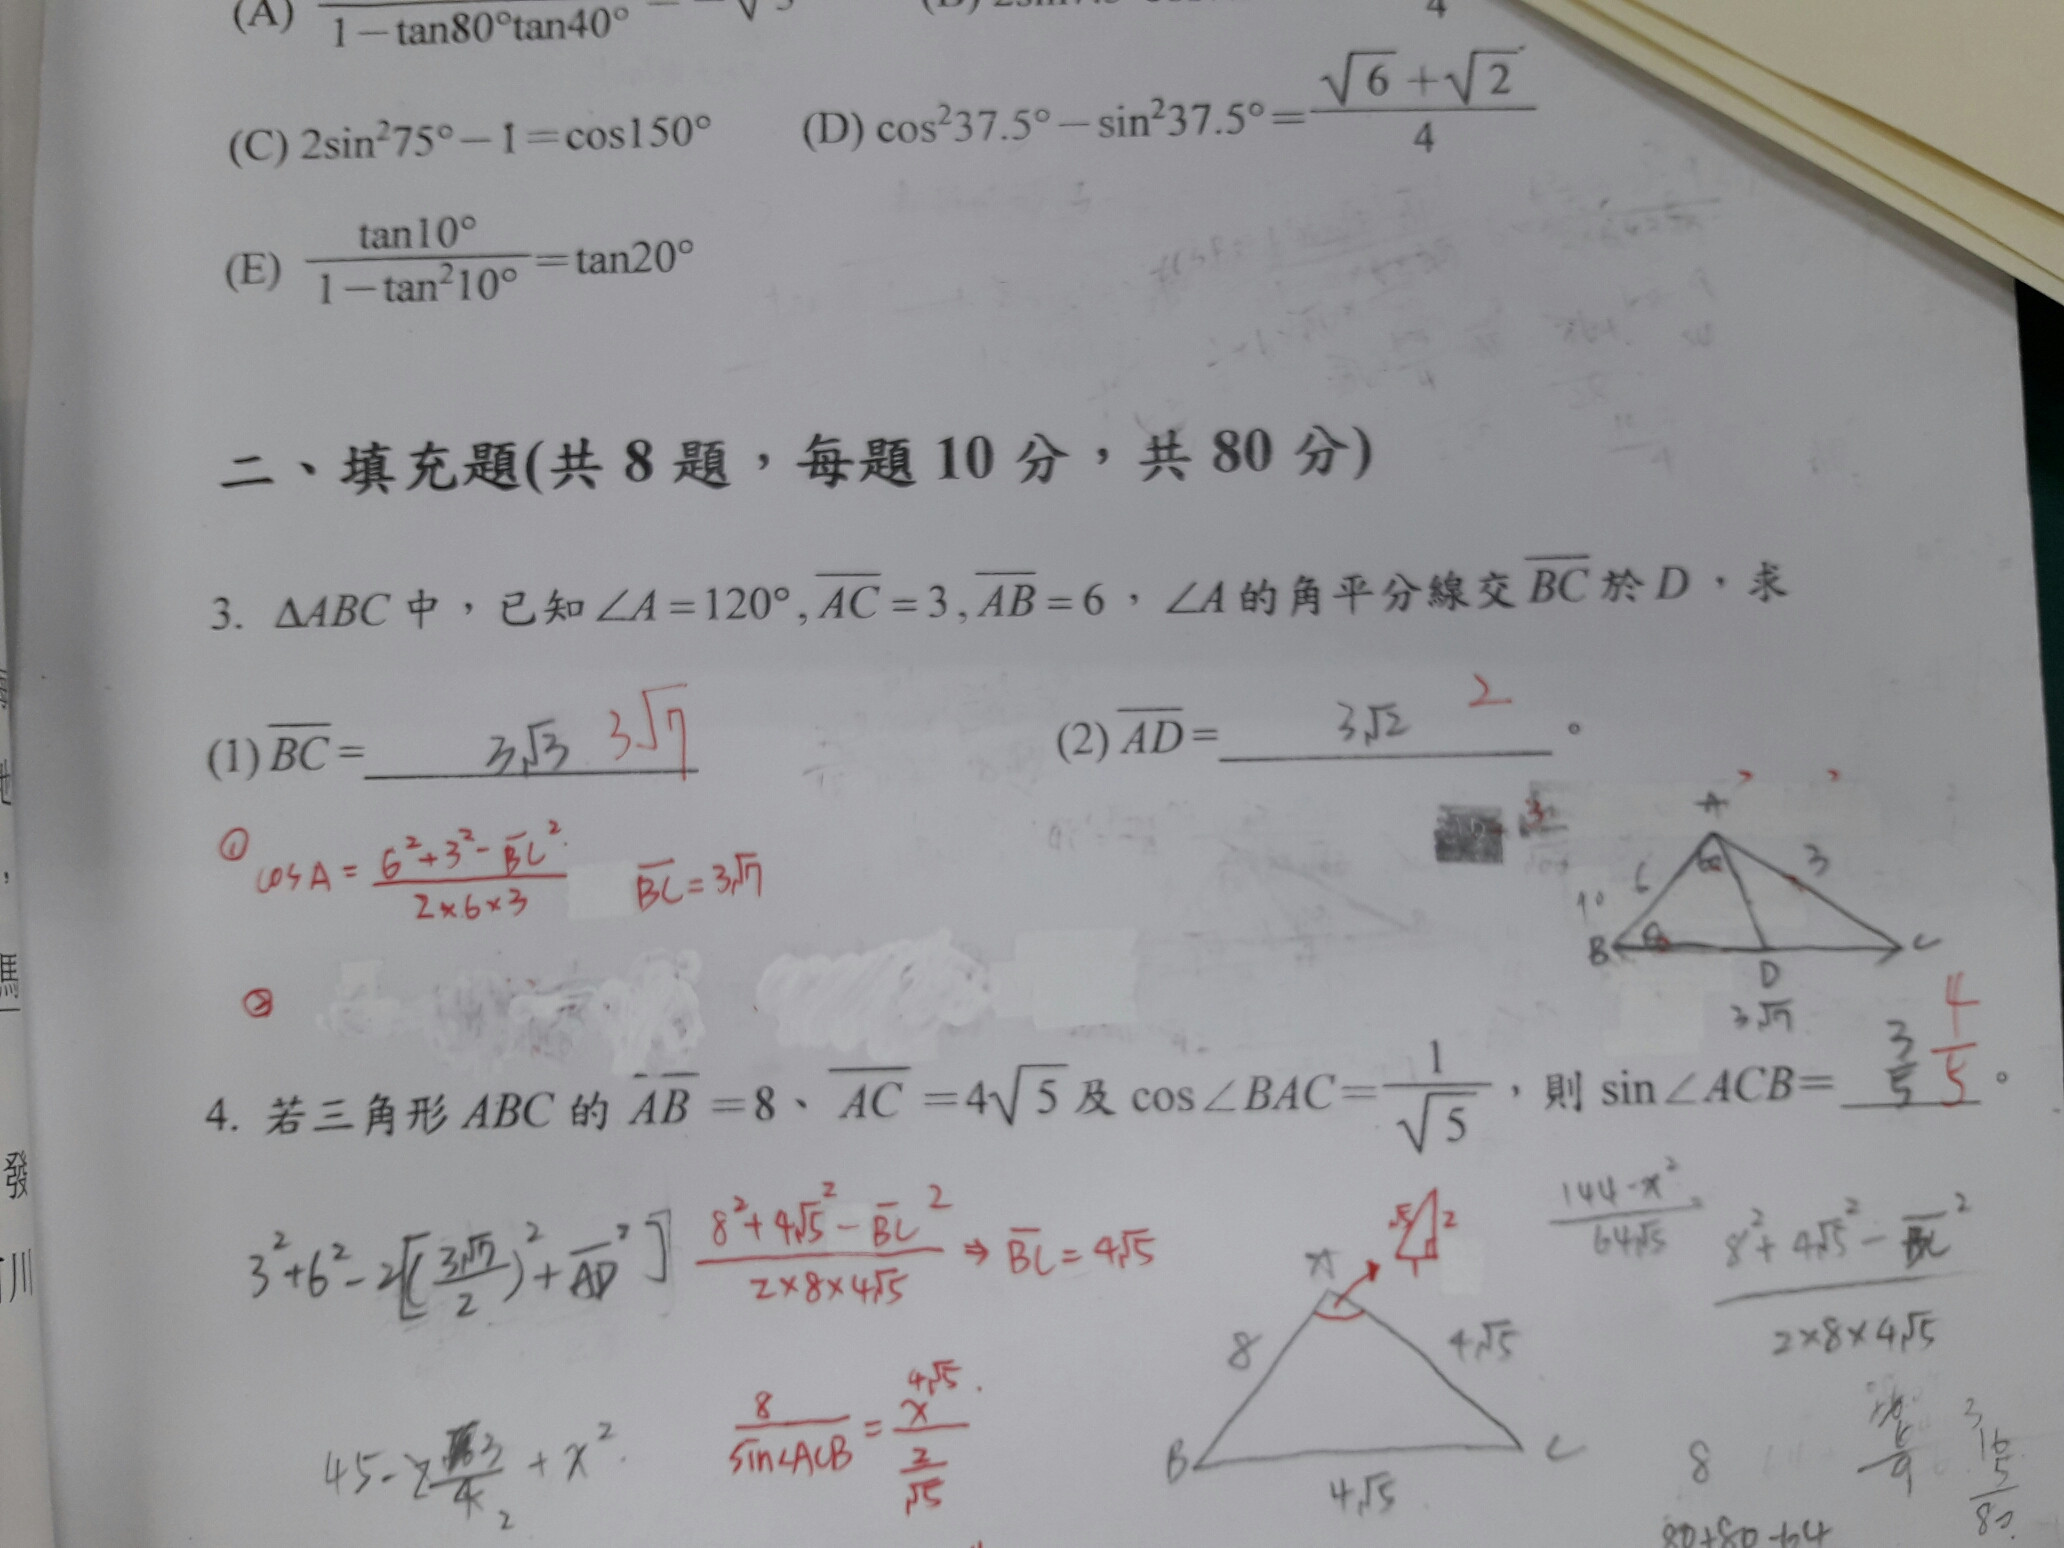 (A) 1－tan80°tan40°
(C) 2sin²75°－1＝cos150° (D) cos²37.5°－sin²37.5°＝(√6＋√2)/4
(E) tan10°/(1－tan²10°)＝tan20°
二、填充題(共 8 題，每題 10 分，共 80 分)
3. ΔABC 中，已知∠A＝120°, AC＝3, AB＝6，∠A 的角平分線交 BC 於 D，求
(1) BC＝ 3√3 3√7 (2) AD＝ 3√2 2 。
① cosA = (6²+3²-BC²)/(2×6×3) BC=3√7
A
6 3
B D C
3√7
②
4. 若三角形 ABC 的 AB＝8、AC＝4√5 及 cos∠BAC＝1/√5，則 sin∠ACB＝ 3/5 4/5 。
3²+6²-2[(3√7/2)²+AD²] (8²+4√5²-BC²)/(2×8×4√5) ⇒ BC=4√5
√5 2 1
(144-x²)/(64√5) (8²+4√5²-BC²)/(2×8×4√5)
8/sin∠ACB = 4√5 x/(2/√5)
A
8 4√5
B C
4√5
8
80+80-64
發